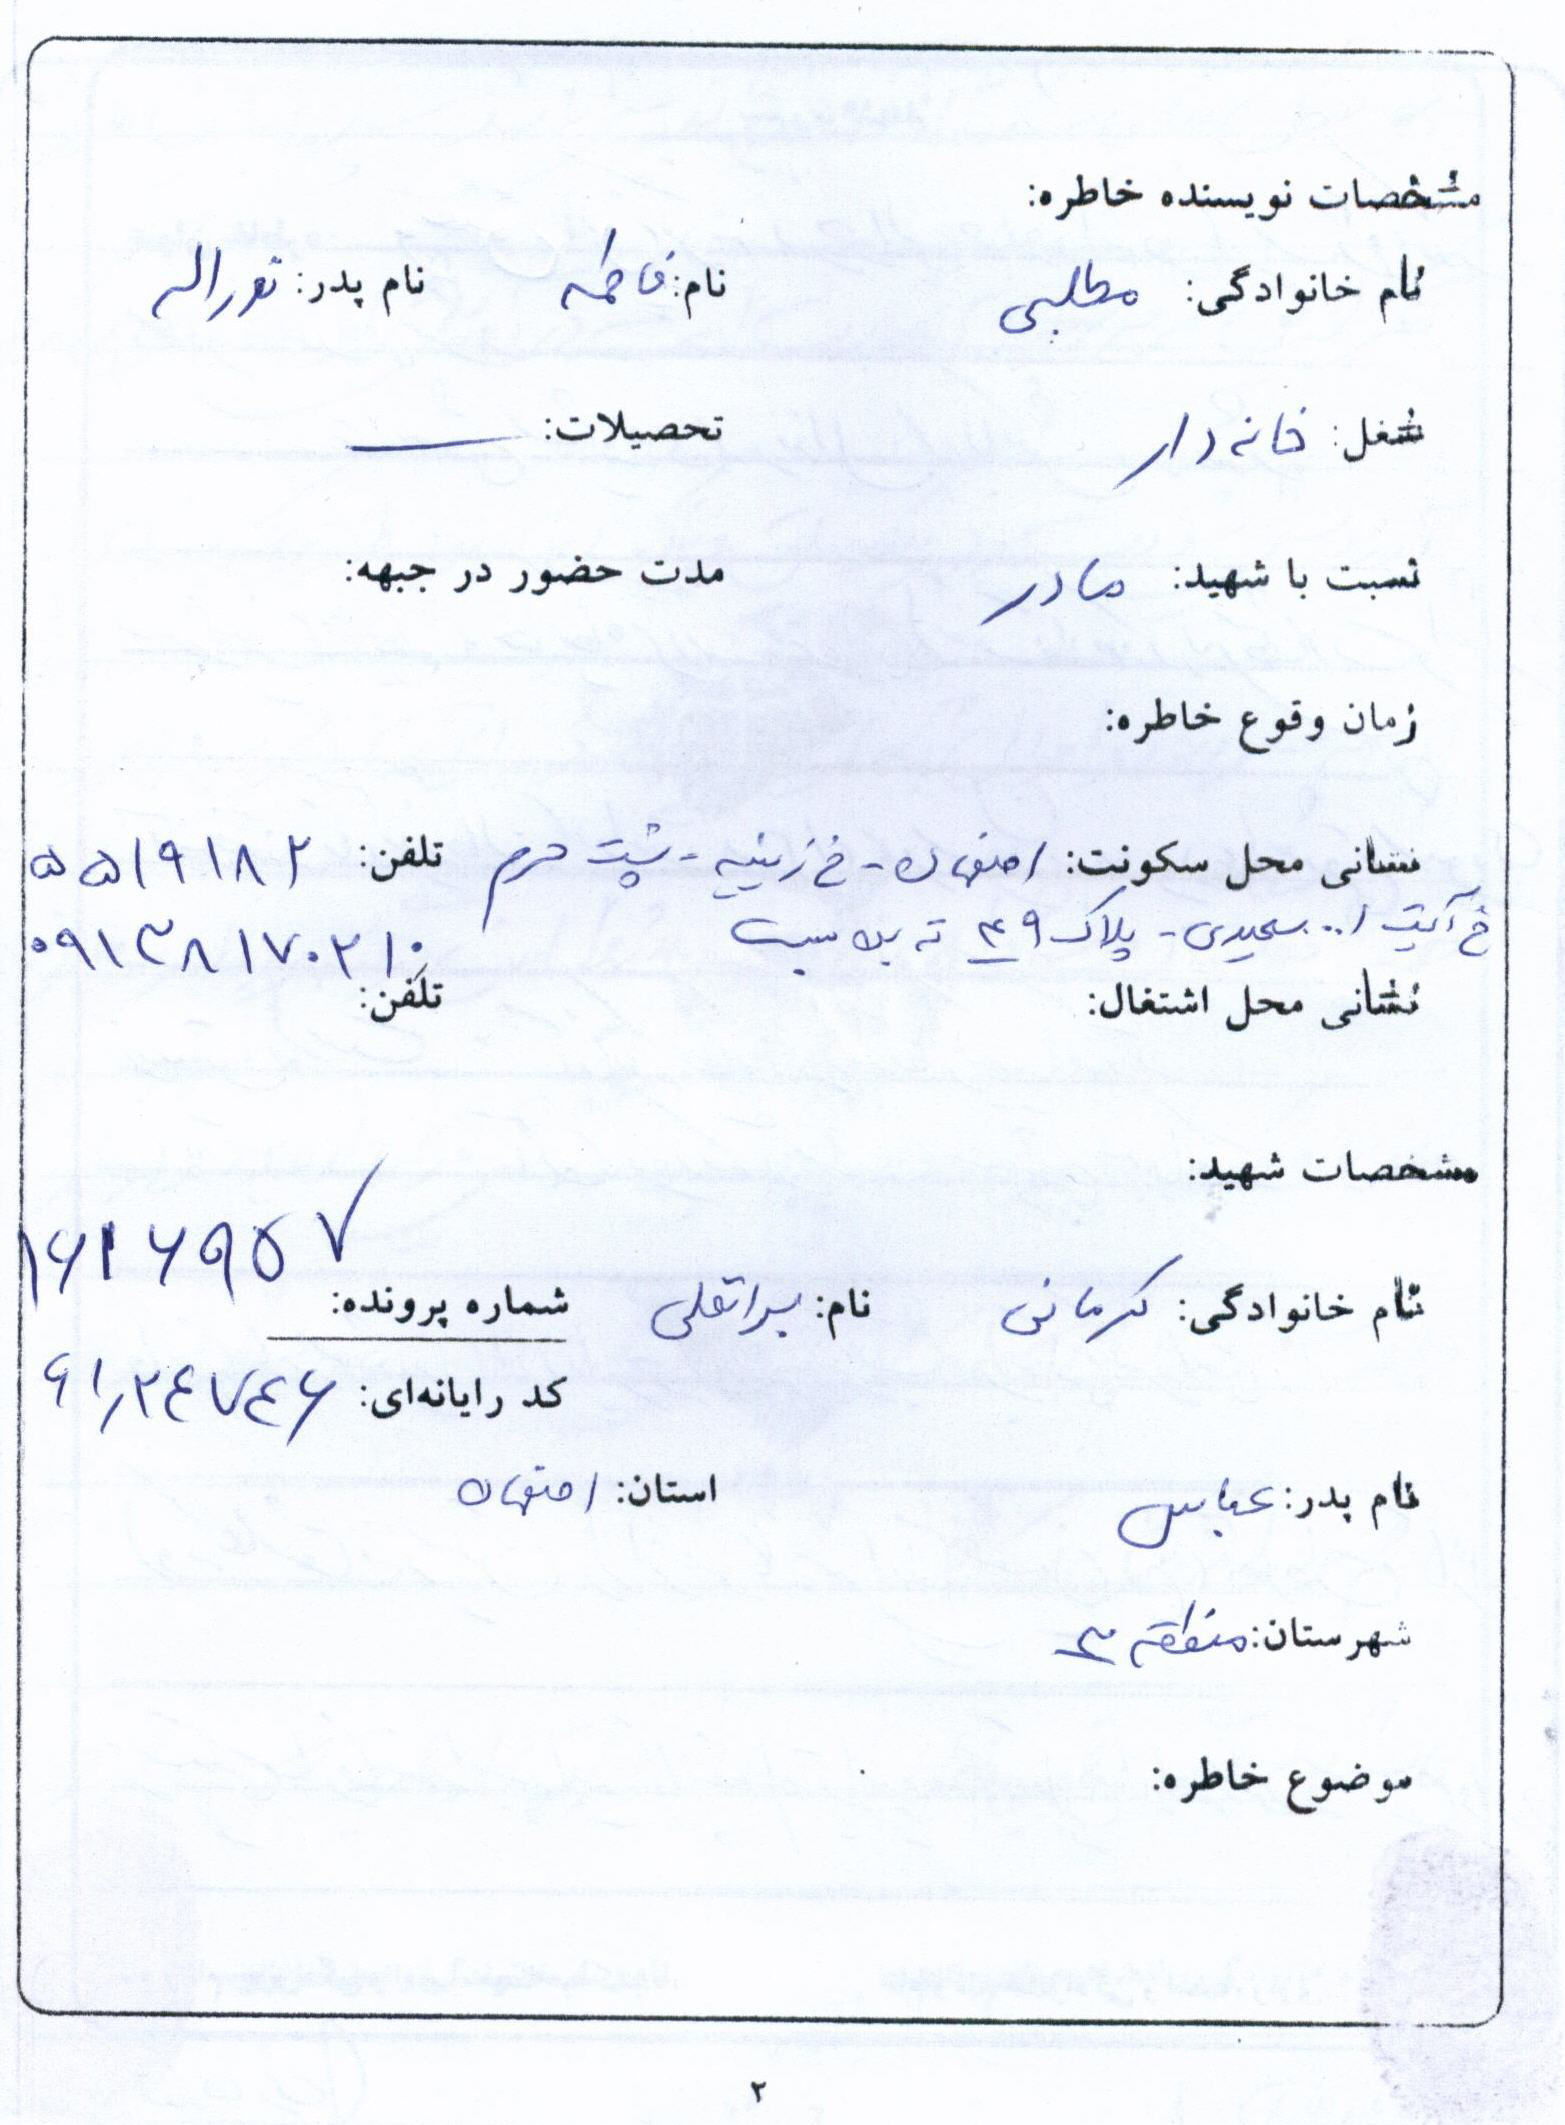 مشخصات نویسنده خاطره:
نام خانوادگی: مطلبی نام: فاطمه نام پدر: نوراله
شغل: خانه دار تحصیلات: ـــ
نسبت با شهید: مادر مدت حضور در جبهه:
زمان وقوع خاطره:
نشانی محل سکونت: اصفهان - خ زینبیه - پشت حرم تلفن: ۵۵۱۹۱۸۲
خ آیت ا.. سعیدی - پلاک ۴۹ ته بن بست ۰۹۱۳۸۱۷۰۲۱۰
نشانی محل اشتغال: تلفن:
مشخصات شهید:
نام خانوادگی: کرمانی نام: براتعلی شماره پرونده: ۱۶۱۶۹۵۷
کد رایانه‌ای: ۶۱۰۲۴۷۴۶
نام پدر: عباس استان: اصفهان
شهرستان: منطقه ۳
موضوع خاطره:
۲